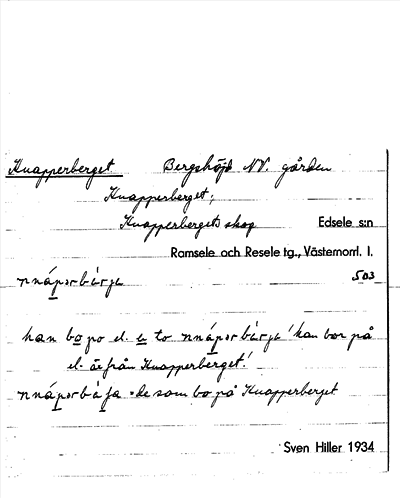 Knapperberget Bergshöjd NV. gården
Knapperberget;
Knapperbergets skog Edsele s:n
Ramsele och Resele tg., Västernorrl. l.
503
han bo po el. to 'han bor på
el. är från Knapperberget.'
de som bo på Knapperberget
Sven Hiller 1934